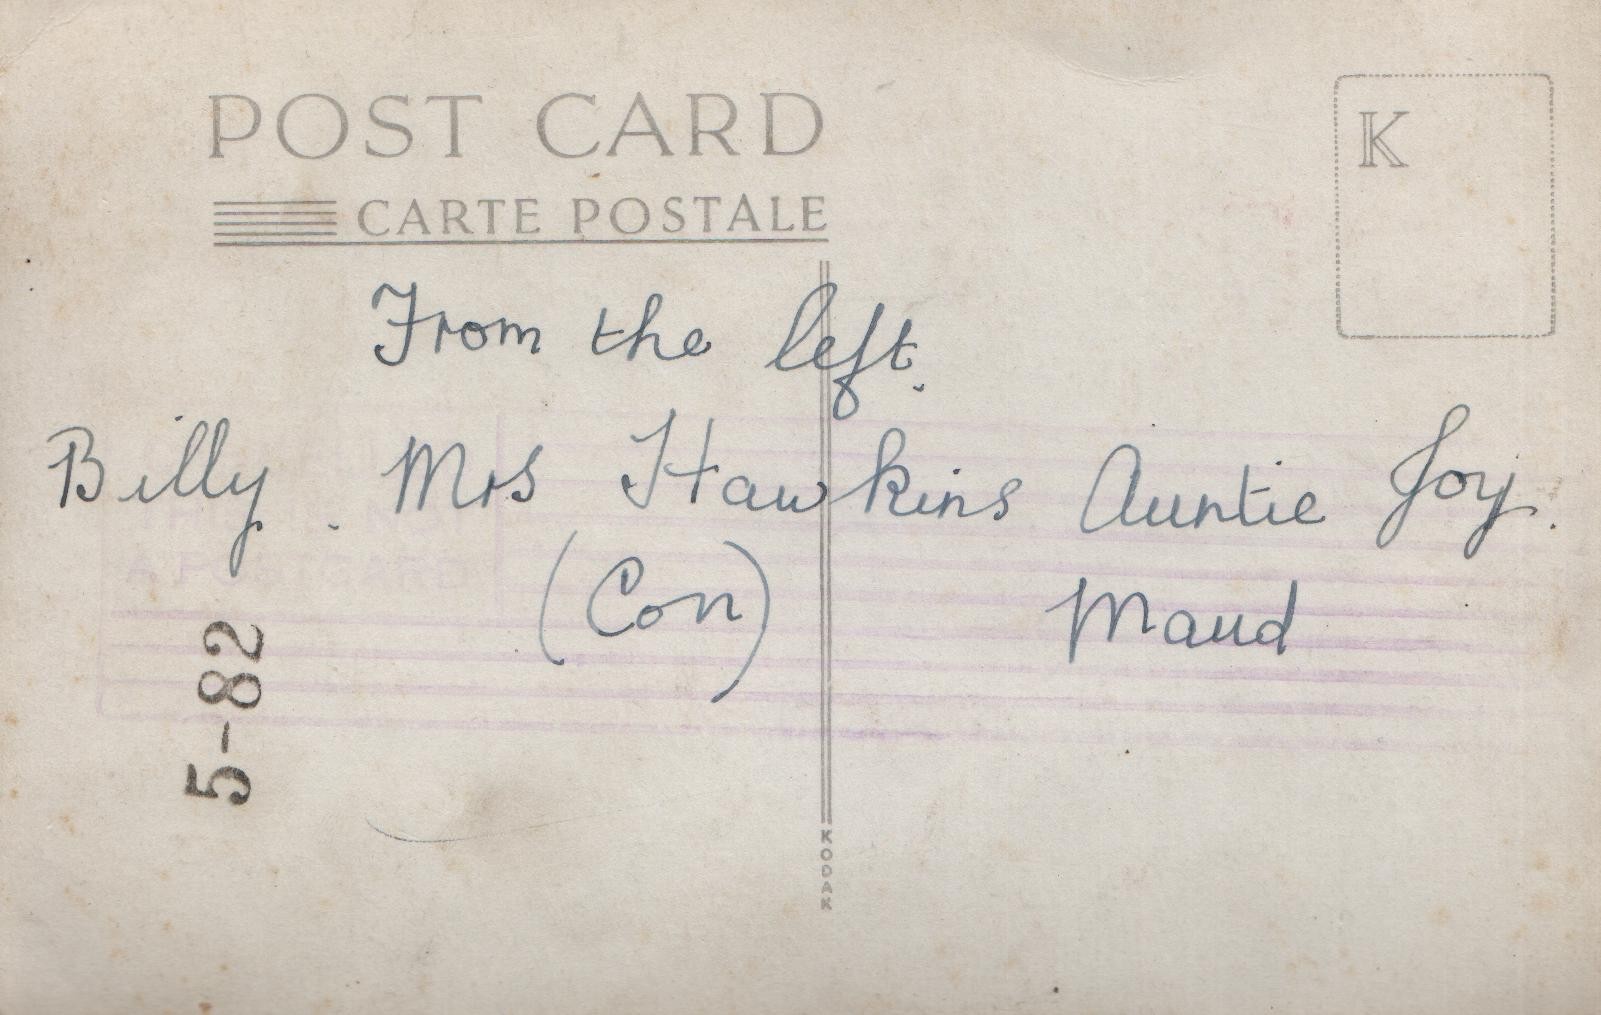 POST CARD
K
CARTE POSTALE
From the left.
Billy. Mrs Hawkins Auntie Joy.
(Con) Maud
A POSTCARD
5-82
KODAK